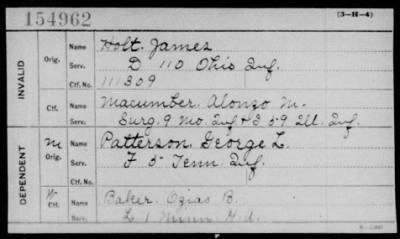 154962
(3-H-4)
INVALID
Orig.
Name Holt. James
Serv. D 110 Ohio Inf.
Ctf. No. 111309
Ctf.
Name Macumber. Alonzo M.
Serv. Surg. 9 Mo. Inf & F 59 Ill. Inf.
DEPENDENT
M
Orig.
Name Patterson. George L.
Serv. F 5 Tenn. Inf.
Ctf. No.
W
Ctf.
Name Baker. Ozias B.
Serv. L 1 Minn. H. A.